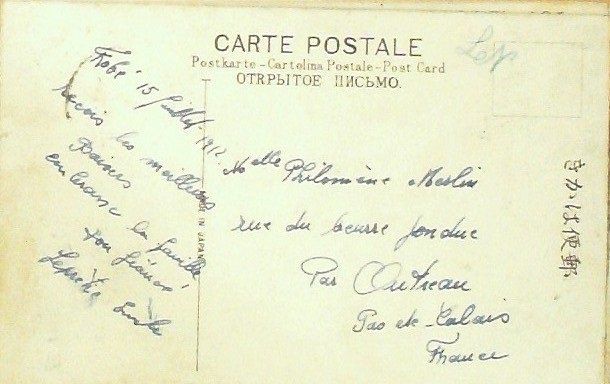 CARTE POSTALE
Postkarte-Cartolina Postale-Post Card
ОТКРЫТОЕ ПИСЬМО.
Kobé 15 Juillet 1912
reçois les meilleurs
Baisers
embrasse la famille
ton
Emile
MADE IN JAPAN
Melle Philomène Merlin
rue du beurre fondue
Par Outreau
Pas de Calais
France
きかは便郵